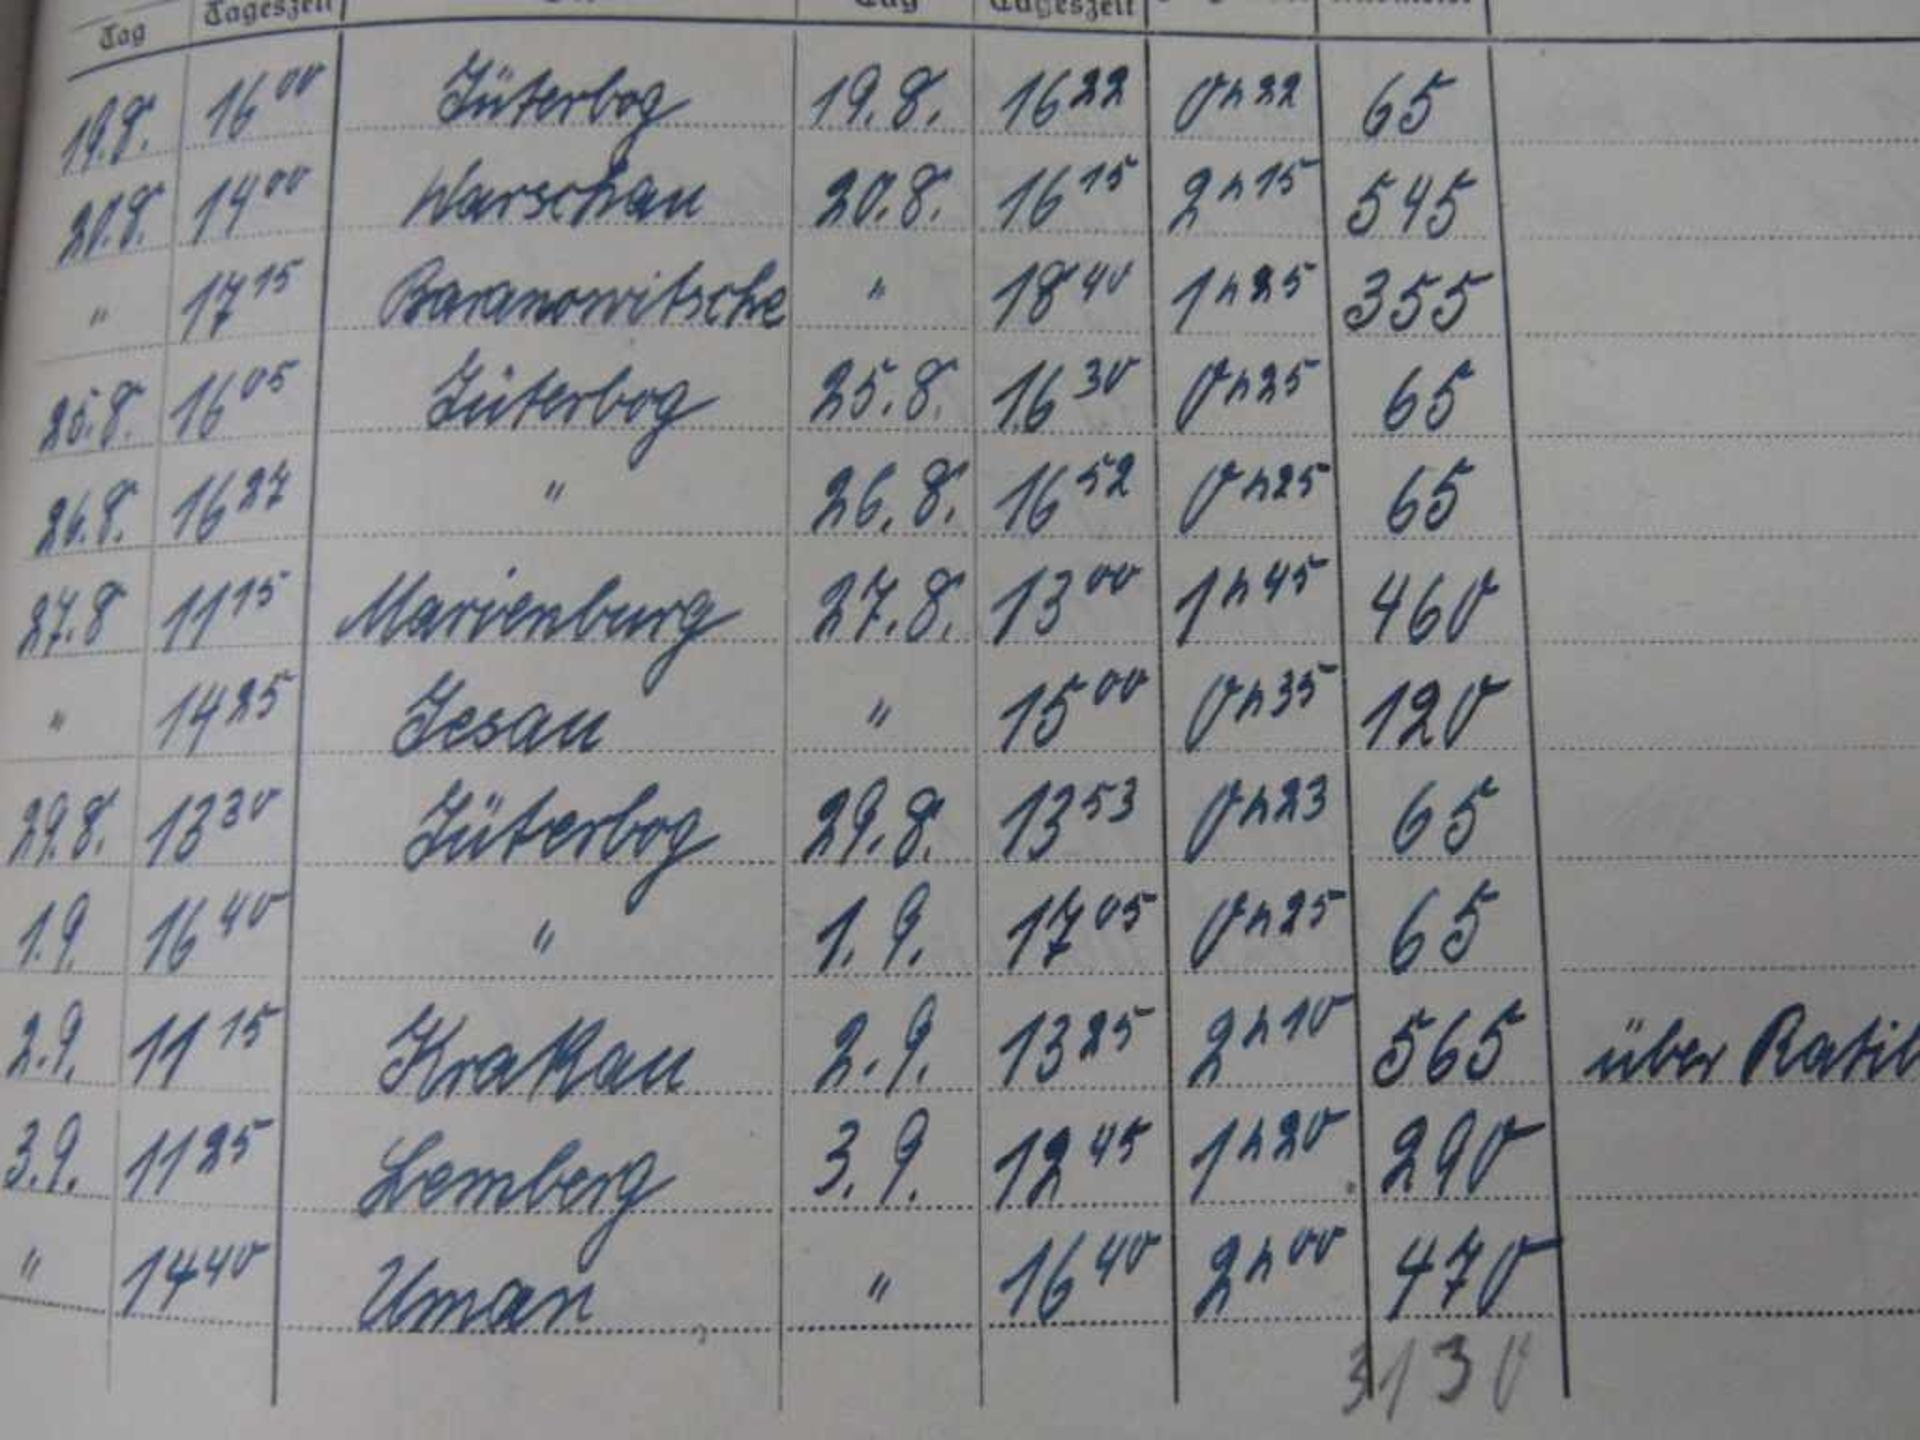 Tag Tageszeit Tag Tageszeit
19.8. 16 00 Jüterbog 19.8. 16 22 0 h 22 65
20.8. 14 00 Warschau 20.8. 16 15 2 h 15 545
" 17 15 Baranowitsche " 18 40 1 h 25 355
25.8. 16 05 Jüterbog 25.8. 16 30 0 h 25 65
26.8. 16 27 " 26.8. 16 52 0 h 25 65
27.8 11 15 Marienburg 27.8. 13 00 1 h 45 460
" 14 25 Jesau " 15 00 0 h 35 120
29.8. 13 30 Jüterbog 29.8. 13 53 0 h 23 65
1.9. 16 40 " 1.9. 17 05 0 h 25 65
2.9. 11 15 Krakau 2.9. 13 25 2 h 10 565 über Ratib
3.9. 11 25 Lemberg 3.9. 12 45 1 h 20 290
" 14 40 Uman " 16 40 2 h 00 470
3130